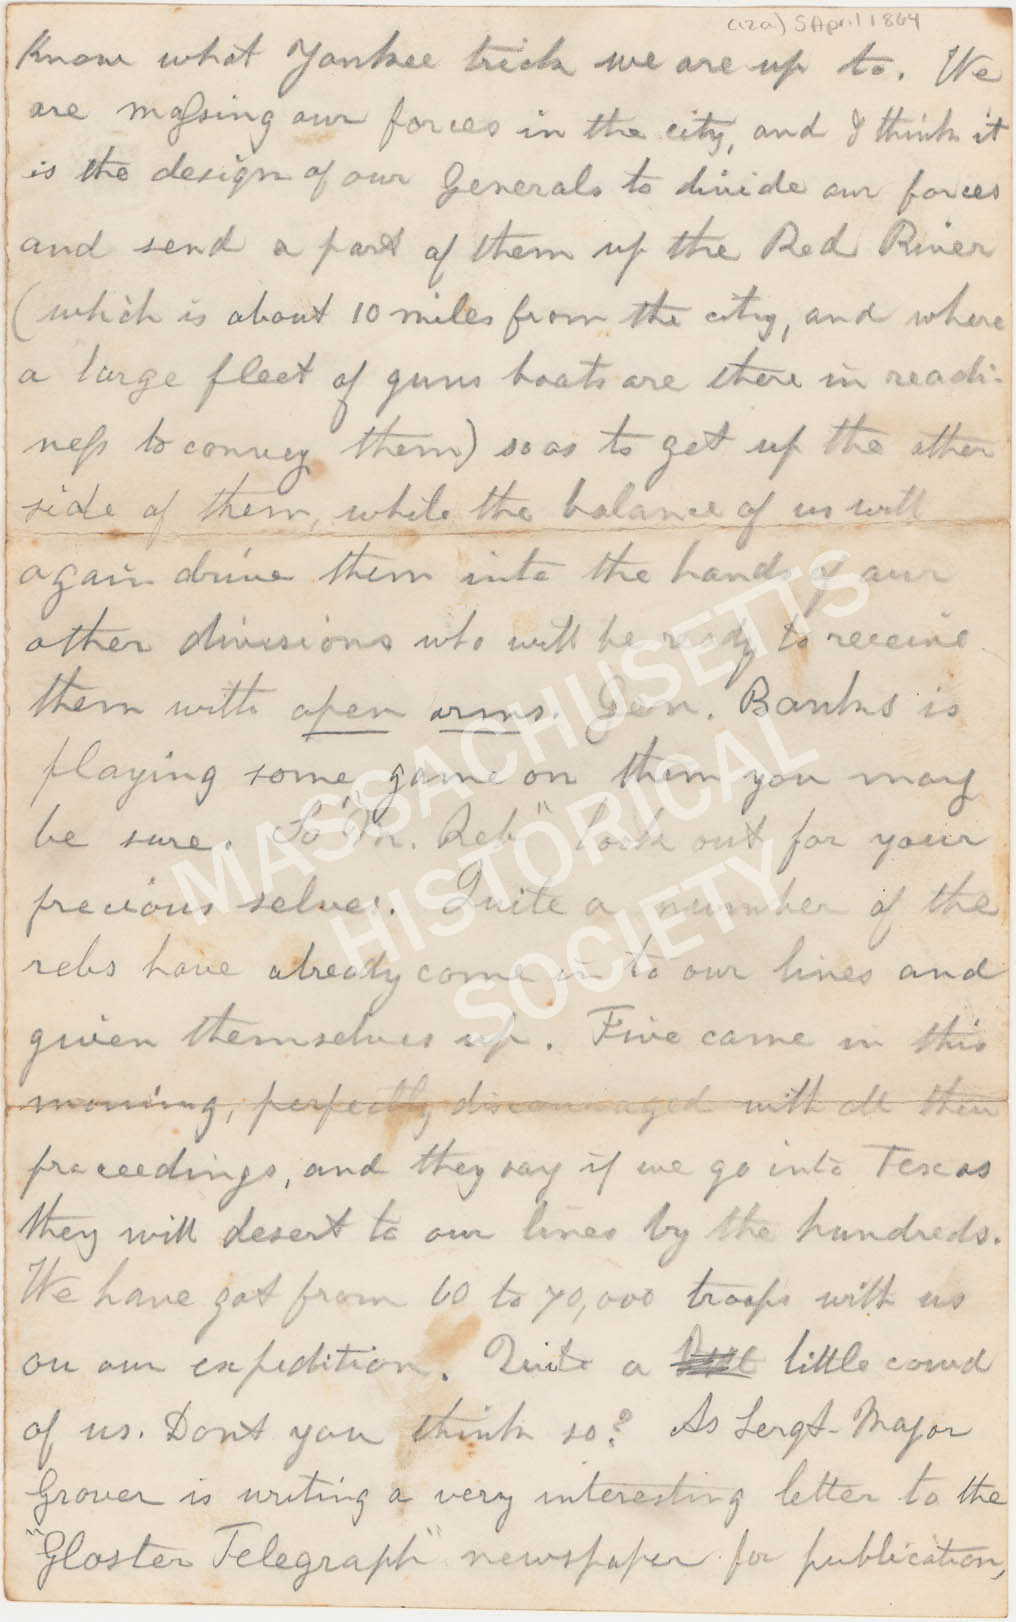 (12a) 5 April 1864
Know what Yankee trick we are up to. We
are massing our forces in the city, and I think it
is the design of our Generals to divide our forces
and send a part of them up the Red River
(which is about 10 miles from the city, and where
a large fleet of guns boats are there in readi-
ness to convey them) so as to get up the other
side of them, while the balance of us will
again drive them into the hands of our
other divisions who will be ready to receive
them with open arms. Gen. Banks is
playing some game on them you may
be sure. So "Mr. Reb" look out for your
precious selves. Quite a number of the
rebs have already come in to our lines and
given themselves up. Five came in this
morning, perfectly discouraged with all their
proceedings, and they say if we go into Texas
they will desert to our lines by the hundreds.
We have got from 60 to 70,000 troops with us
on our expedition. Quite a little crowd
of us. Dont you think so? As Sergt-Major
Grover is writing a very interesting letter to the
"Gloster Telegraph" newspaper for publication,
MASSACHUSETTS
HISTORICAL
SOCIETY